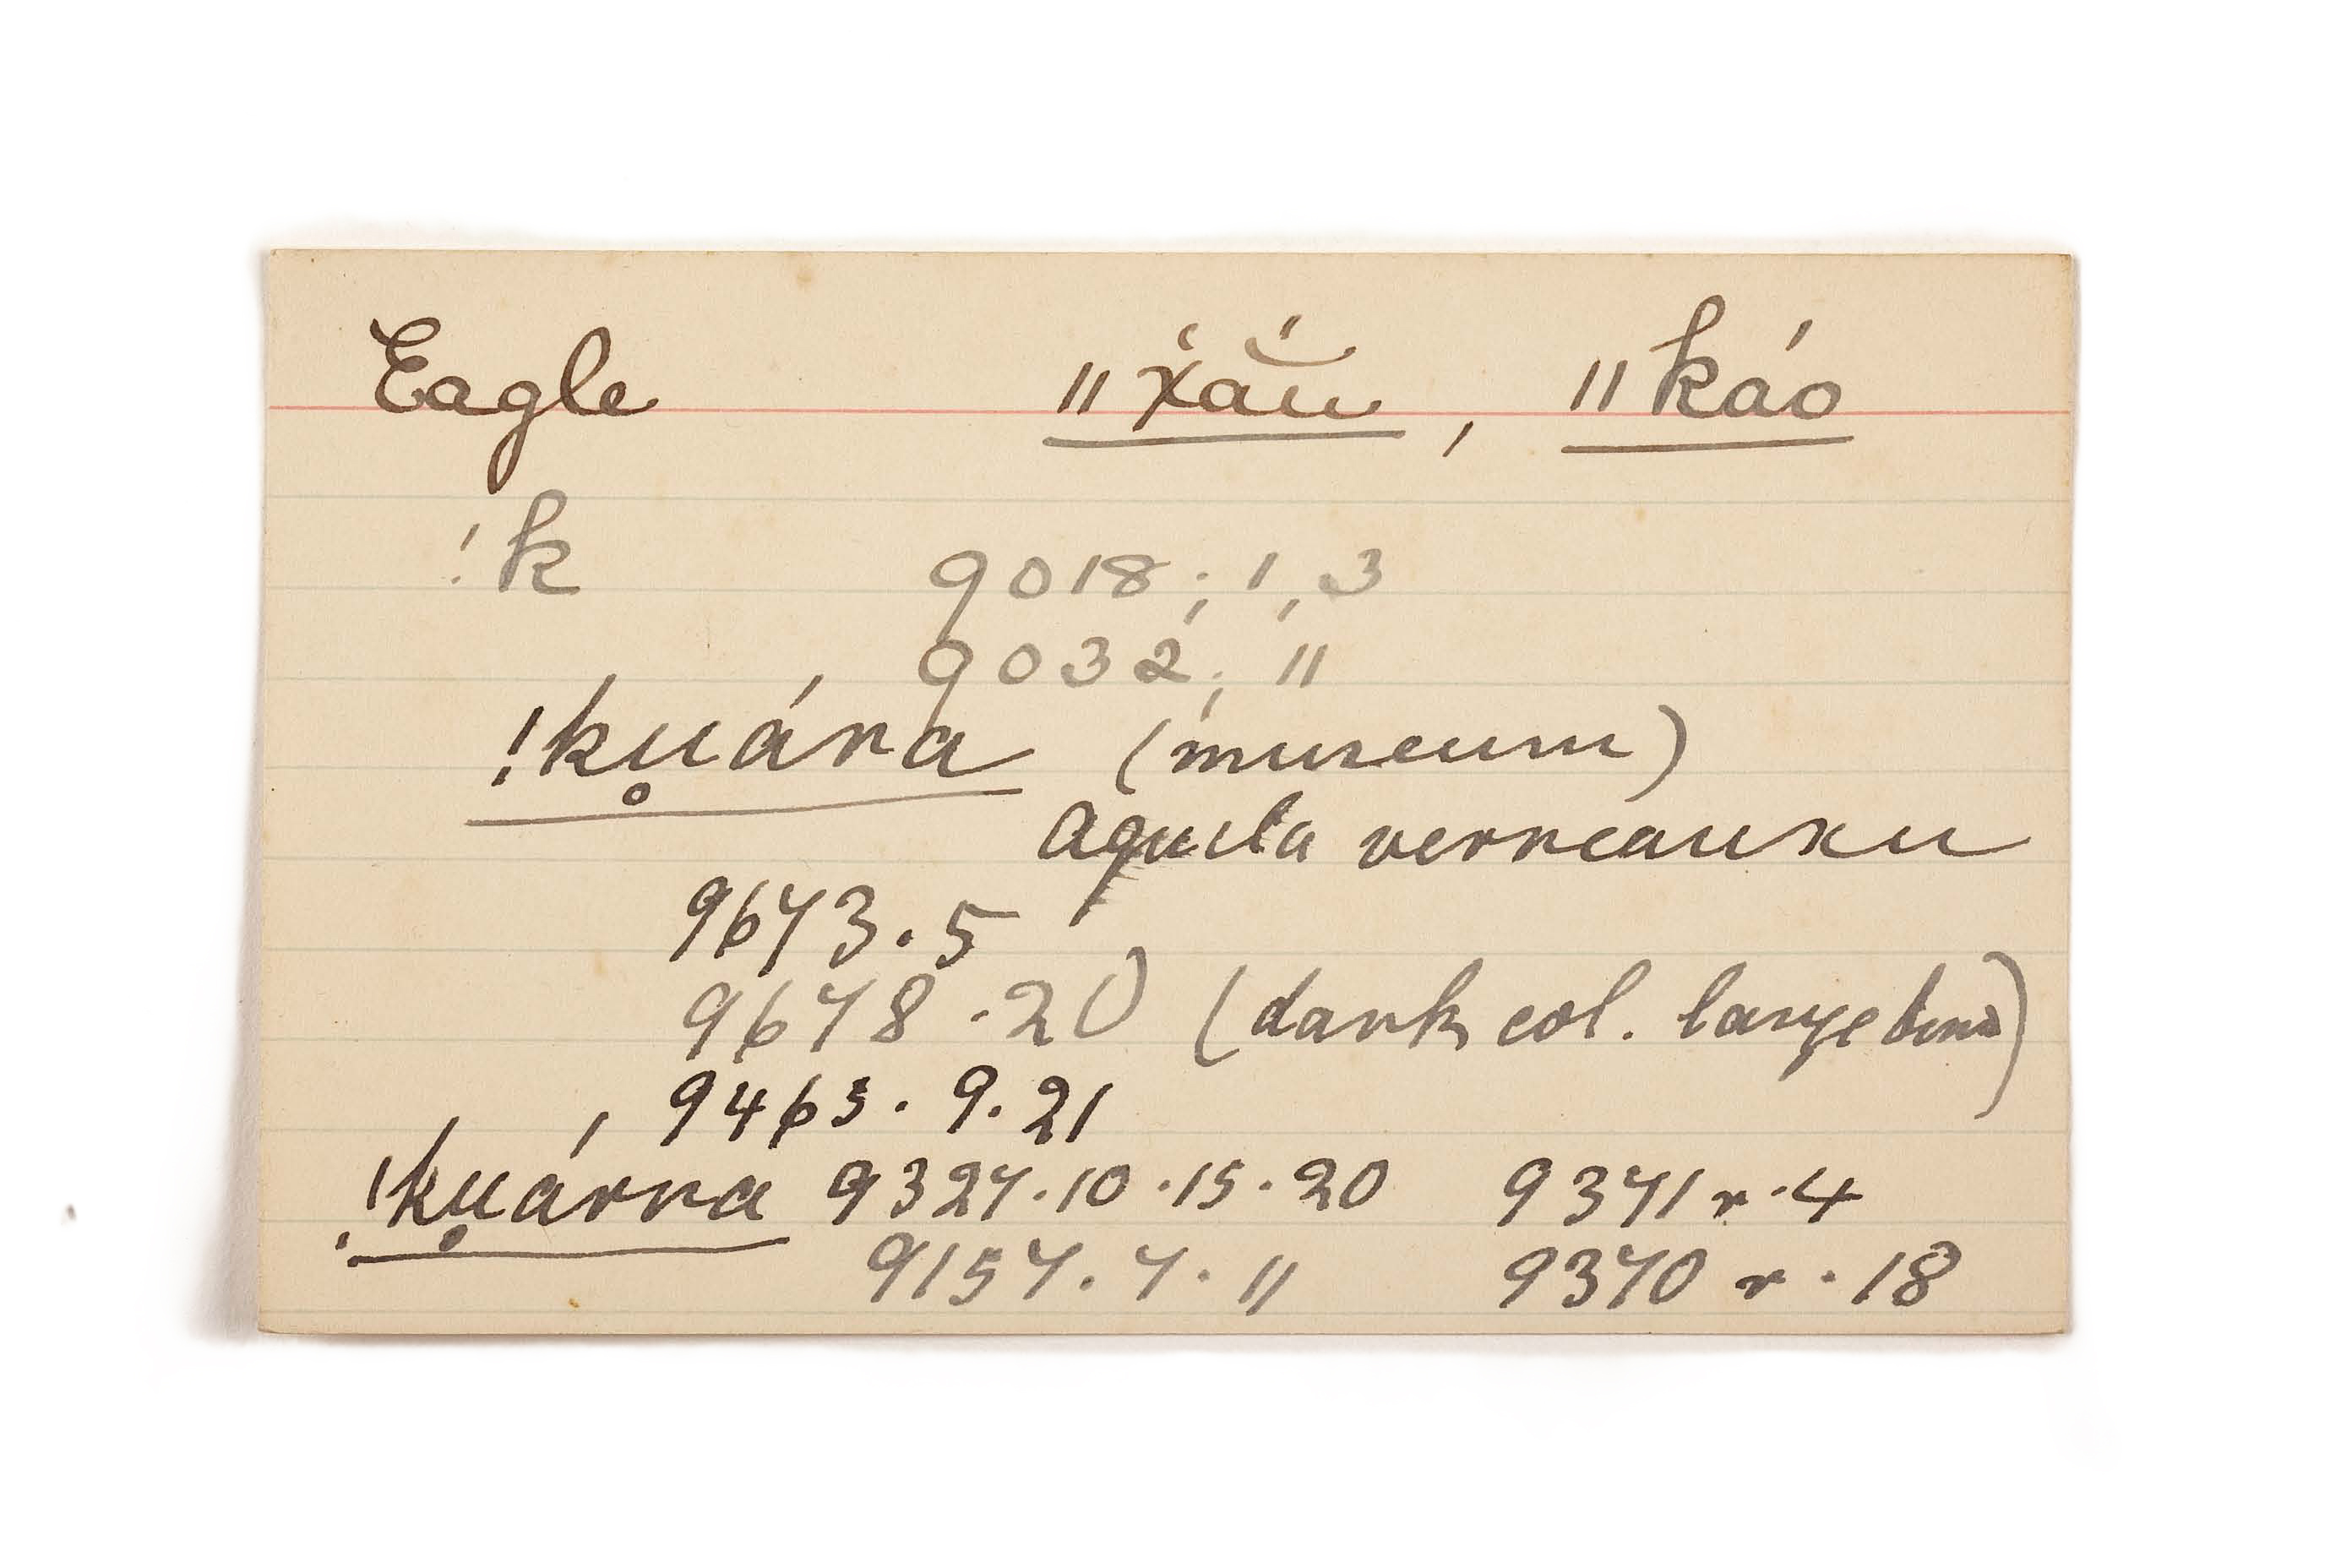 Eagle ǁx̔ăú̆, ǁkáo
!k 9018; 1, 3
9032; 11
!ku̥ára (museum)
Aquila verreauxii
9673. 5
9678 . 20 (dark col. large bird)
9463. 9. 21
!ku̥árra 9327. 10 . 15. 20 9371 r. 4
9157. 7. 11 9370 r. 18